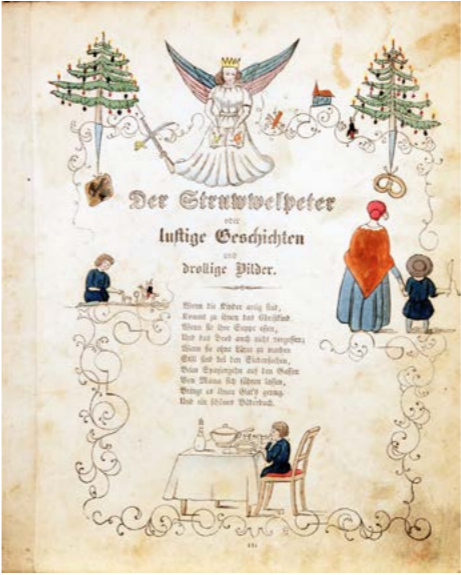 Der Struwwelpeter
oder
lustige Geschichten
und
drollige Bilder.
Wenn die Kinder artig sind,
Kommt zu ihnen das Christkind;
Wenn sie ihre Suppe essen
Und das Brod auch nicht vergessen,
Wenn sie ohne Lärm zu machen
Still sind bei den Siebensachen,
Beim Spazierengehn auf den Gassen
Von Mama sich führen lassen,
Bringt es ihnen Gut's genug
Und ein schönes Bilderbuch.